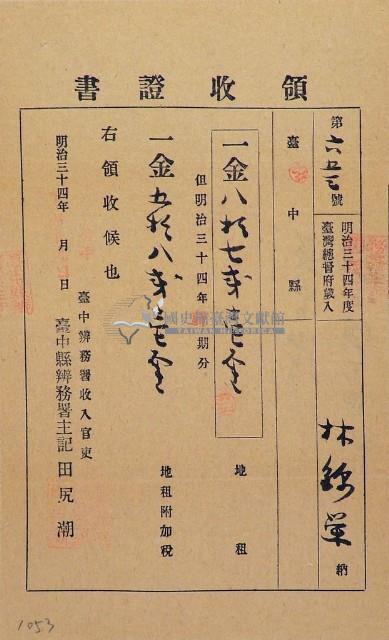 領收證書
第六五三號
明治三十四年度
臺灣總督府歲入
林錦榮 納
臺中縣
一金八 七 地租
但明治三十四年 期分
一金五 八 地租附加税
右領收候也
明治三十四年 月 日
臺中辨務署收入官吏
臺中縣辨務署主記 田尻潮
國史館臺灣文獻館
TAIWAN HISTORICA
1053